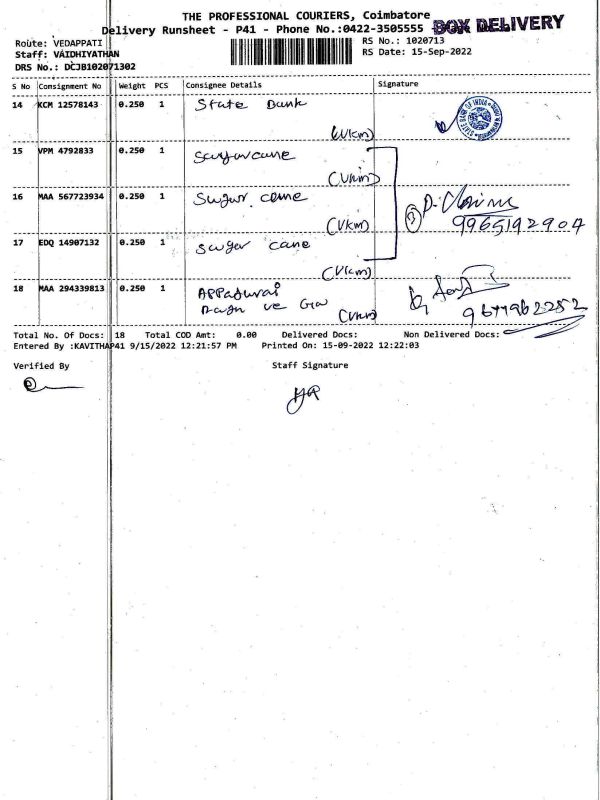 THE PROFESSIONAL COURIERS, Coimbatore
Delivery Runsheet - P41 - Phone No.:0422-3505555
BOX DELIVERY
Route: VEDAPPATI
RS No.: 1020713
Staff: VAIDHIYATHAN
RS Date: 15-Sep-2022
DRS No.: DCJB102071302
S No Consignment No Weight PCS Consignee Details Signature
14 KCM 12578143 0.250 1 State Bank
(Vkm)
STATE BANK OF INDIA
15 VPM 4792833 0.250 1 Sugarcane
(Vkm)
16 MAA 567723934 0.250 1 Sugar cane
(Vkm)
3
9965192904
17 EDQ 14907132 0.250 1 Sugar cane
(Vkm)
18 MAA 294339813 0.250 1 Appadurai
(Vkm)
9677962252
Total No. Of Docs: 18 Total COD Amt: 0.00 Delivered Docs: Non Delivered Docs:
Entered By :KAVITHAP41 9/15/2022 12:21:57 PM Printed On: 15-09-2022 12:22:03
Verified By Staff Signature